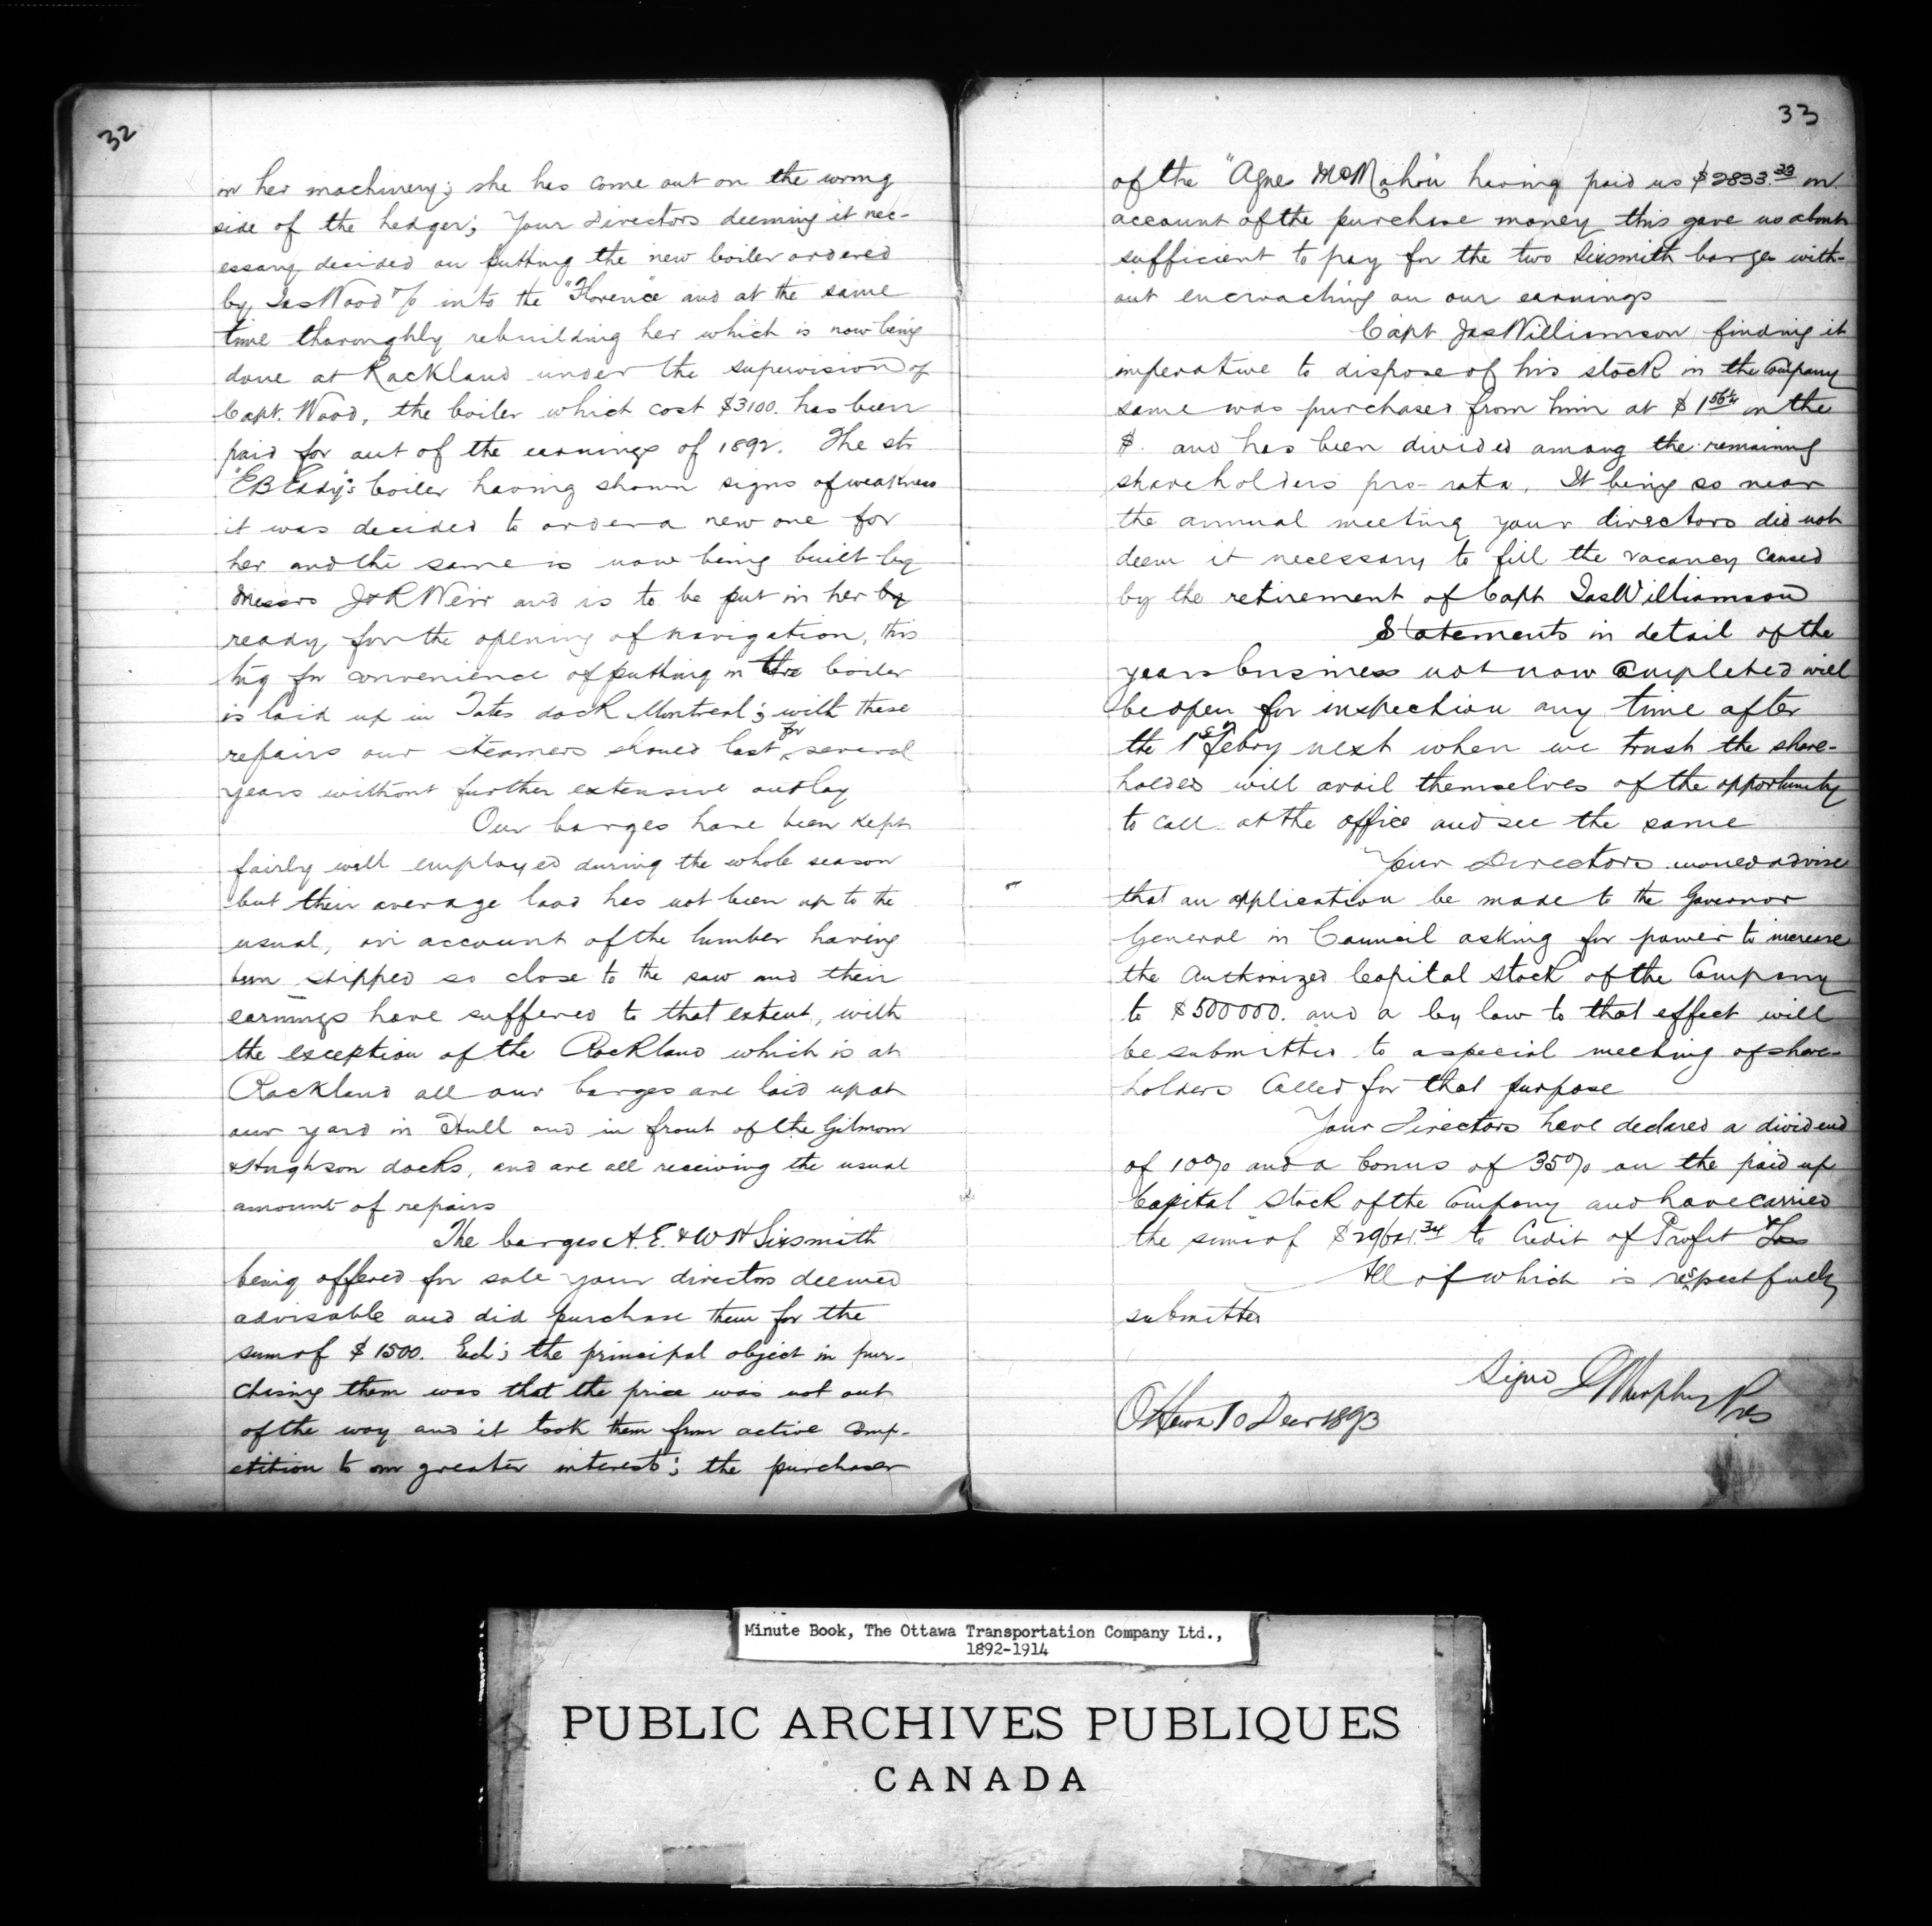 32
in her machinery; she has come out on the wrong
side of the ledger; Your Directors deeming it nec-
essary decided on putting the new boiler ordered
by Jas Wood into the "Florence" and at the same
time thoroughly rebuilding her which is now being
done at Rockland under the supervision of
Capt. Wood, the boiler which cost $3100. has been
paid for out of the earnings of 1892. The str
"EB Eddy's boiler having shown signs of weakness
it was decided to order a new one for
her and the same is now being built by
Messrs J & R Weir and is to be put in her by
ready for the opening of navigation, this
tug for convenience of putting in the boiler
is laid up in Tates dock Montreal; with these
repairs our steamers should last for several
years without further extensive outlay
Our barges have been kept
fairly well employed during the whole season
but their average load has not been up to the
usual, on account of the lumber having
been shipped so close to the saw and their
earnings have suffered to that extent, with
the exception of the Rockland which is at
Rockland all our barges are laid up at
our yard in Hull and in front of the Gilmour
& Hughson docks, and are all receiving the usual
amount of repairs
The barges A.E. & W H Sixsmith
being offered for sale your directors deemed
advisable and did purchase them for the
sum of $1500. Each; the principal object in pur-
chasing them was that the price was not out
of the way and it took them from active comp-
etition to our greater interest; the purchaser
33
of the "Agnes McMahon" having paid us $2833.33 on
account of the purchase money this gave us about
sufficient to pay for the two Sixsmith barges with-
out encroaching on our earnings
Capt Jas Williamson finding it
imperative to dispose of his stock in the Company
same was purchased from him at $1 56¼ on the
$. and has been divided among the remaining
shareholders pro-rata. It being so near
the annual meeting your directors did not
deem it necessary to fill the vacancy caused
by the retirement of Capt Jas Williamson
Statements in detail of the
years business not now completed will
be open for inspection any time after
the 1st Febry next when we trust the share-
holders will avail themselves of the opportunity
to call at the office and see the same
Your Directors would advise
that an application be made to the Governor
General in Council asking for power to increase
the Authorized Capital Stock of the Company
to $500000. and a by law to that effect will
be submitted to a special meeting of share-
holders Called for that purpose
Your Directors have declared a dividend
of 10% and a bonus of 35% on the paid up
Capital Stock of the Company and have carried
the sum of to Credit of Profit & Loss
All of which is respectfully
submitted
Signd D Murphy Pres
Ottawa 10 Decr 1893
Minute Book, The Ottawa Transportation Company Ltd.,
1892-1914
PUBLIC ARCHIVES PUBLIQUES
CANADA